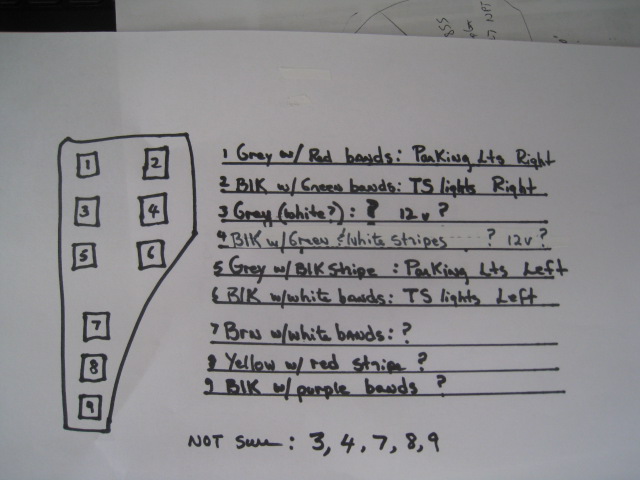 855
NPT
1 2
3 4
5 6
7
8
9
1 Grey w/ Red bands: Parking Lts Right
2 Blk w/ Green bands: TS lights Right
3 Grey (white?) : ? 12v ?
4 Blk w/ Green & white stripes ? 12v ?
5 Grey w/ Blk Stripe : Parking Lts Left
6 Blk w/ white bands: TS lights Left
7 Brn w/ white bands: ?
8 Yellow w/ red stripe ?
9 Blk w/ purple bands ?
NOT Sure : 3, 4, 7, 8, 9